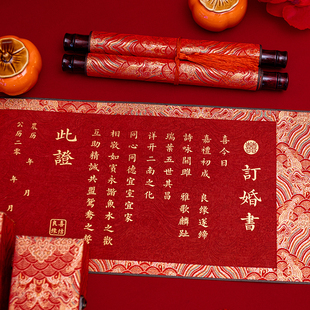 訂婚書
喜今日
嘉禮初成　良緣遂締
詩咏關雎　雅歌麟趾
瑞葉五世其昌
祥开二南之化
同心同德宜室宜家
相敬如賓永諧魚水之歡
互助精誠共盟鴛鴦之誓
此證
農历　年　月
公历二零　年　月
喜结良缘